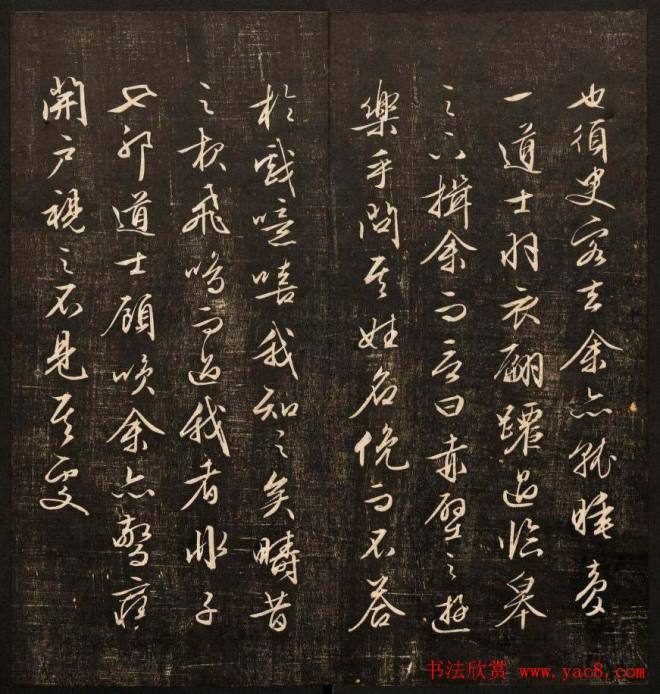 也須臾客去余亦就睡夢
一道士羽衣翩躚過臨皋
之下揖余而言曰赤壁之遊
樂乎問其姓名俛而不答
於戲噫嘻我知之矣疇昔
之夜飛鳴而過我者非子
也邪道士顧咲余亦驚寤
開戶視之不見其處
书法欣赏 www.yac8.com